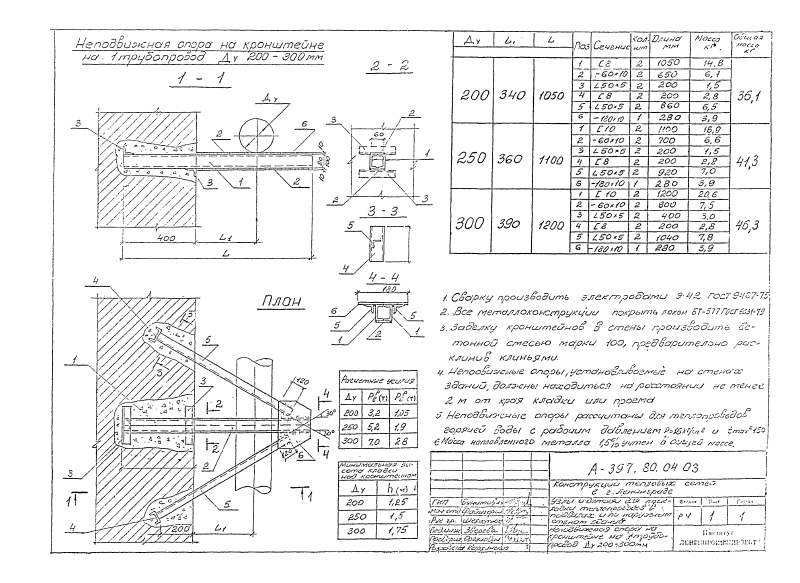 Неподвижная опора на кронштейне
на 1 трубопровод Ду 200-300мм
1 - 1
2 - 2
Ду
3
2
6
3
1
2
400
L1
L
60
2
1
2
3
3 - 3
5
4
4 - 4
180
6
5
5
1
2
1
План
4
5
3
3
1
3
2
2
2
4
4
6
1
1
5
4
200
L1
Ду L1 L Поз Сечение Кол. шт Длина мм Масса кг Общая масса кг
200 340 1050 36,1
1 [8 2 1050 14,8
2 -60×10 2 650 6,1
3 L50×5 2 200 1,5
4 [8 2 200 2,8
5 L50×5 2 860 6,5
6 -180×10 1 280 3,9
250 360 1100 41,3
1 [10 2 1100 18,9
2 -60×10 2 700 6,6
3 L50×5 2 200 1,5
4 [8 2 200 2,8
5 L50×5 2 920 7,0
6 -180×10 1 280 3,9
300 390 1200 46,3
1 [10 2 1200 20,6
2 -60×10 2 800 7,5
3 L50×5 2 400 3,0
4 [8 2 200 2,8
5 L50×5 2 1040 7,8
6 -180×10 1 280 3,9
Расчетные усилия
Ду
200 3,2 1,05
250 5,2 1,9
300 7,0 2,8
Минимальная вы-
сота кладки
над кронштейном
Ду h (м)
200 1,25
250 1,5
300 1,75
1. Сварку производить электродами Э-42 ГОСТ 9467-75
2. Все металлоконструкции покрыть лаком БТ-577 ГОСТ 5631-79
3. Заделку кронштейнов в стены производить бе-
тонной смесью марки 100, предварительно рас-
клинив клиньями.
4. Неподвижные опоры, устанавливаемые на стенах
зданий, должны находиться на расстоянии не менее
2 м от края кладки или проема
5. Неподвижные опоры рассчитаны для теплопроводов
горячей воды с рабочим давлением
6. Масса наплавленного металла 1,5% учтен в общей массе.
А-397.80.04 03
Конструкции тепловых сетей
в г. Ленинграде
Узлы и детали для прок-
ладки теплопроводов в
подвалах и по наружным
стенам зданий
РЧ 1 1
Неподвижная опора на
кронштейне на 1 трубо-
провод Ду 200-300мм
Институт